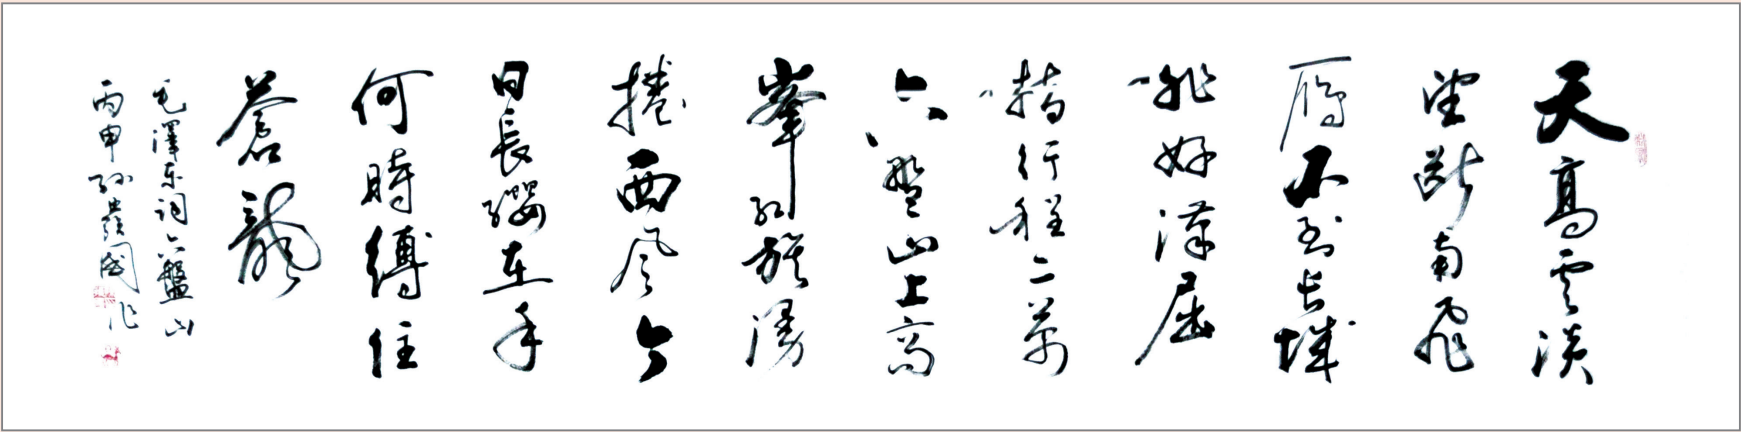 天高雲淡
望斷南飛
鴈不到長城
非好漢屈
指行程二萬
六盤山上高
峯紅旗漫
捲西風今
日長纓在手
何時縛住
蒼龍
毛澤東詞六盤山
丙申孫國作